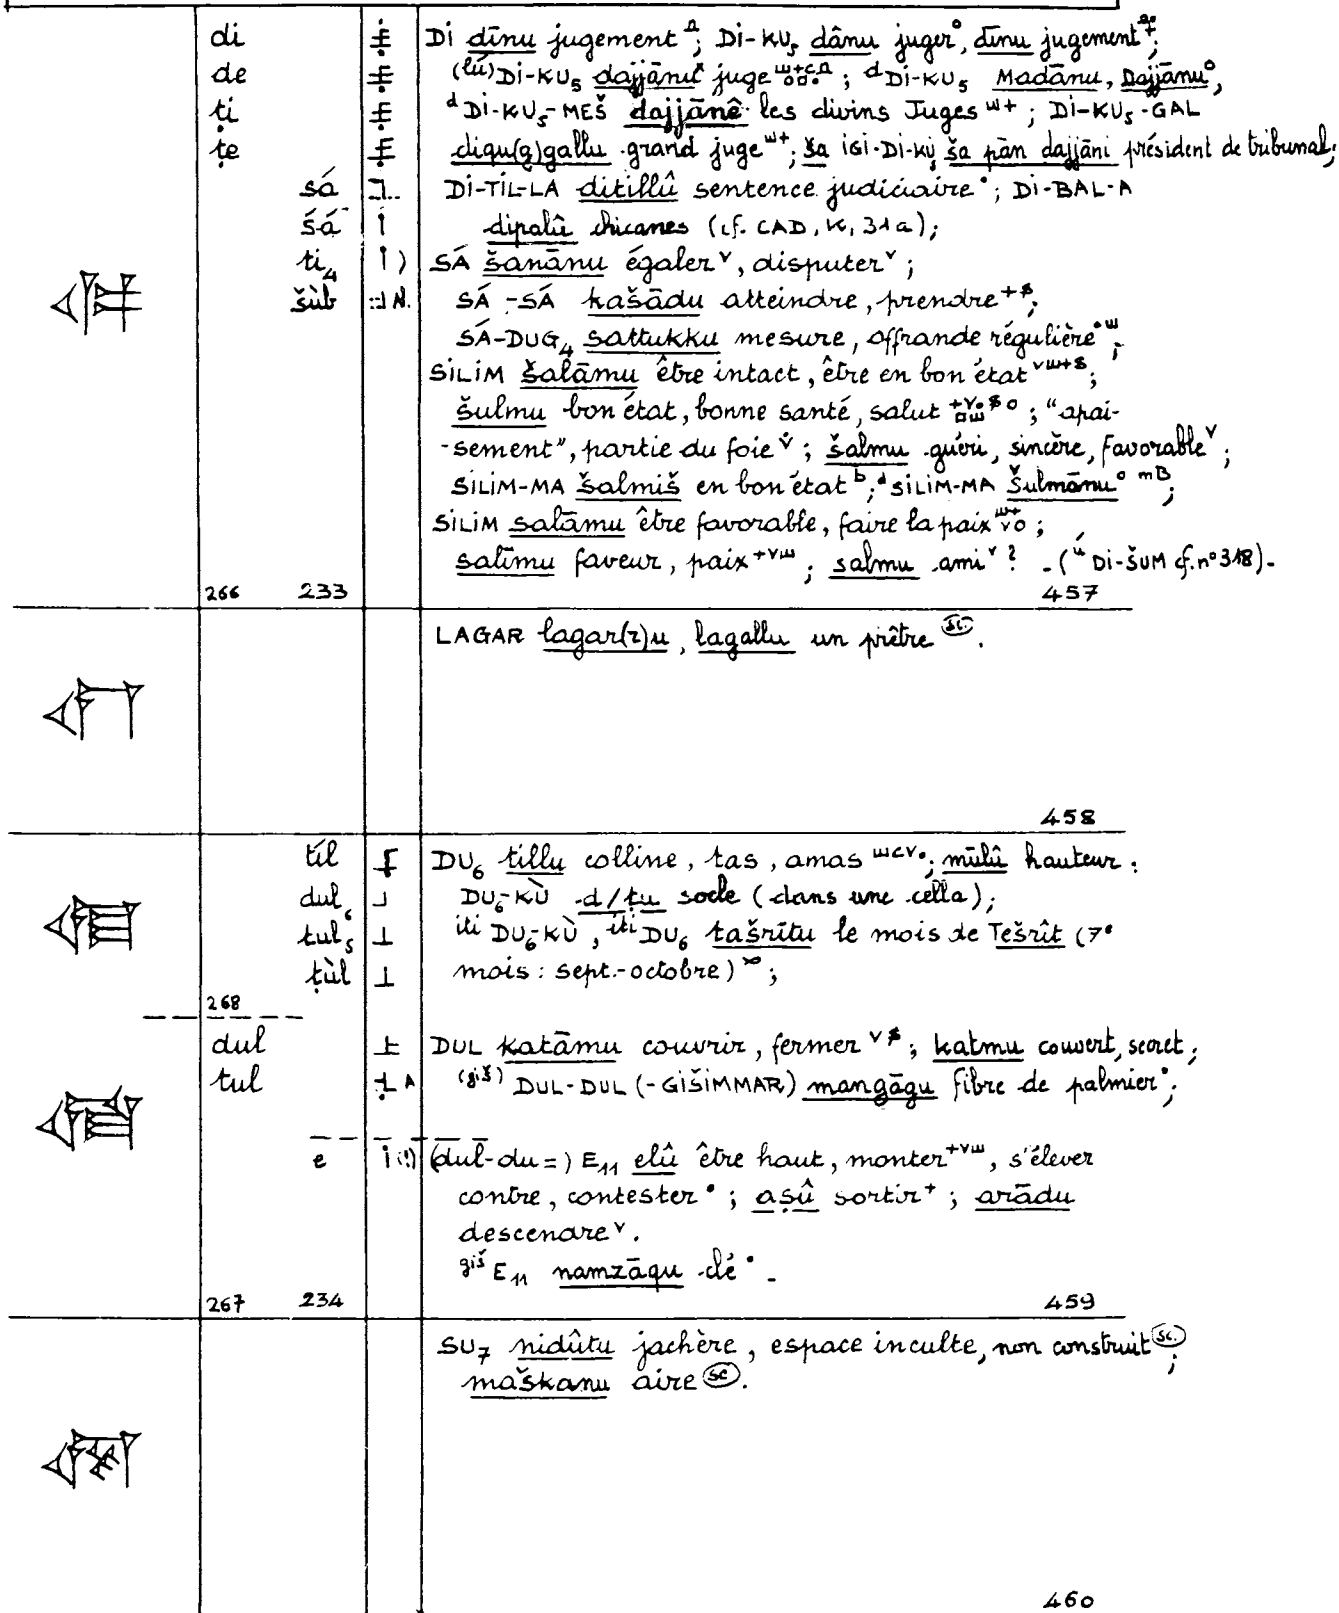 di DI dīnu jugement; DI-KU₅ dânu juger°, dīnu jugement;
de (lú)DI-KU₅ dajjānu juge; ᵈDI-KU₅ Madānu, Dajjānu°,
ṭi ᵈDI-KU₅-MEŠ dajjānê les divins Juges; DI-KU₅-GAL
ṭe diqu(g)gallu grand juge; ša IGI-DI-KU₅ ša pān dajjāni président de tribunal;
sá DI-TIL-LA ditillû sentence judiciaire•; DI-BAL-A
šá dipalû chicanes (cf. CAD, K, 31a);
ti₄ SÁ šanānu égalerᵛ, disputerᵛ;
šùb SÁ-SÁ kašādu atteindre, prendre;
SÁ-DUG₄ sattukku mesure, offrande régulière;
SILIM šalāmu être intact, être en bon état;
šulmu bon état, bonne santé, salut; "apai-
-sement", partie du foie; šalmu guéri, sincère, favorableᵛ;
SILIM-MA šalmiš en bon étatᵇ; ᵈSILIM-MA Šulmānu° mB;
SILIM salāmu être favorable, faire la paix;
salīmu faveur, paix; salmu amiᵛ? - (ᵘ́DI-ŠUM cf. n° 318)-
266 233 457
LAGAR lagar(r)u, lagallu un prêtre (sc.).
458
tíl DU₆ tillu colline, tas, amas; mūlû hauteur.
dul₆ DU₆-KÙ -d/tu socle (dans une cella);
tul₅ iti DU₆-KÙ, iti DU₆ tašrītu le mois de Tešrît (7ᵉ
ṭùl mois: sept.-octobre);
268
dul DUL katāmu couvrir, fermer; katmu couvert, secret;
tul (giš) DUL-DUL (-GIŠIMMAR) mangāgu fibre de palmier•;
e (dul-du=) E₁₁ elû être haut, monter, s'élever
contre, contester•; aṣû sortir⁺; arādu
descendreᵛ.
giš E₁₁ namzāqu clé• -
267 234 459
SU₇ nidûtu jachère, espace inculte, non construit (sc.);
maškanu aire (sc).
460